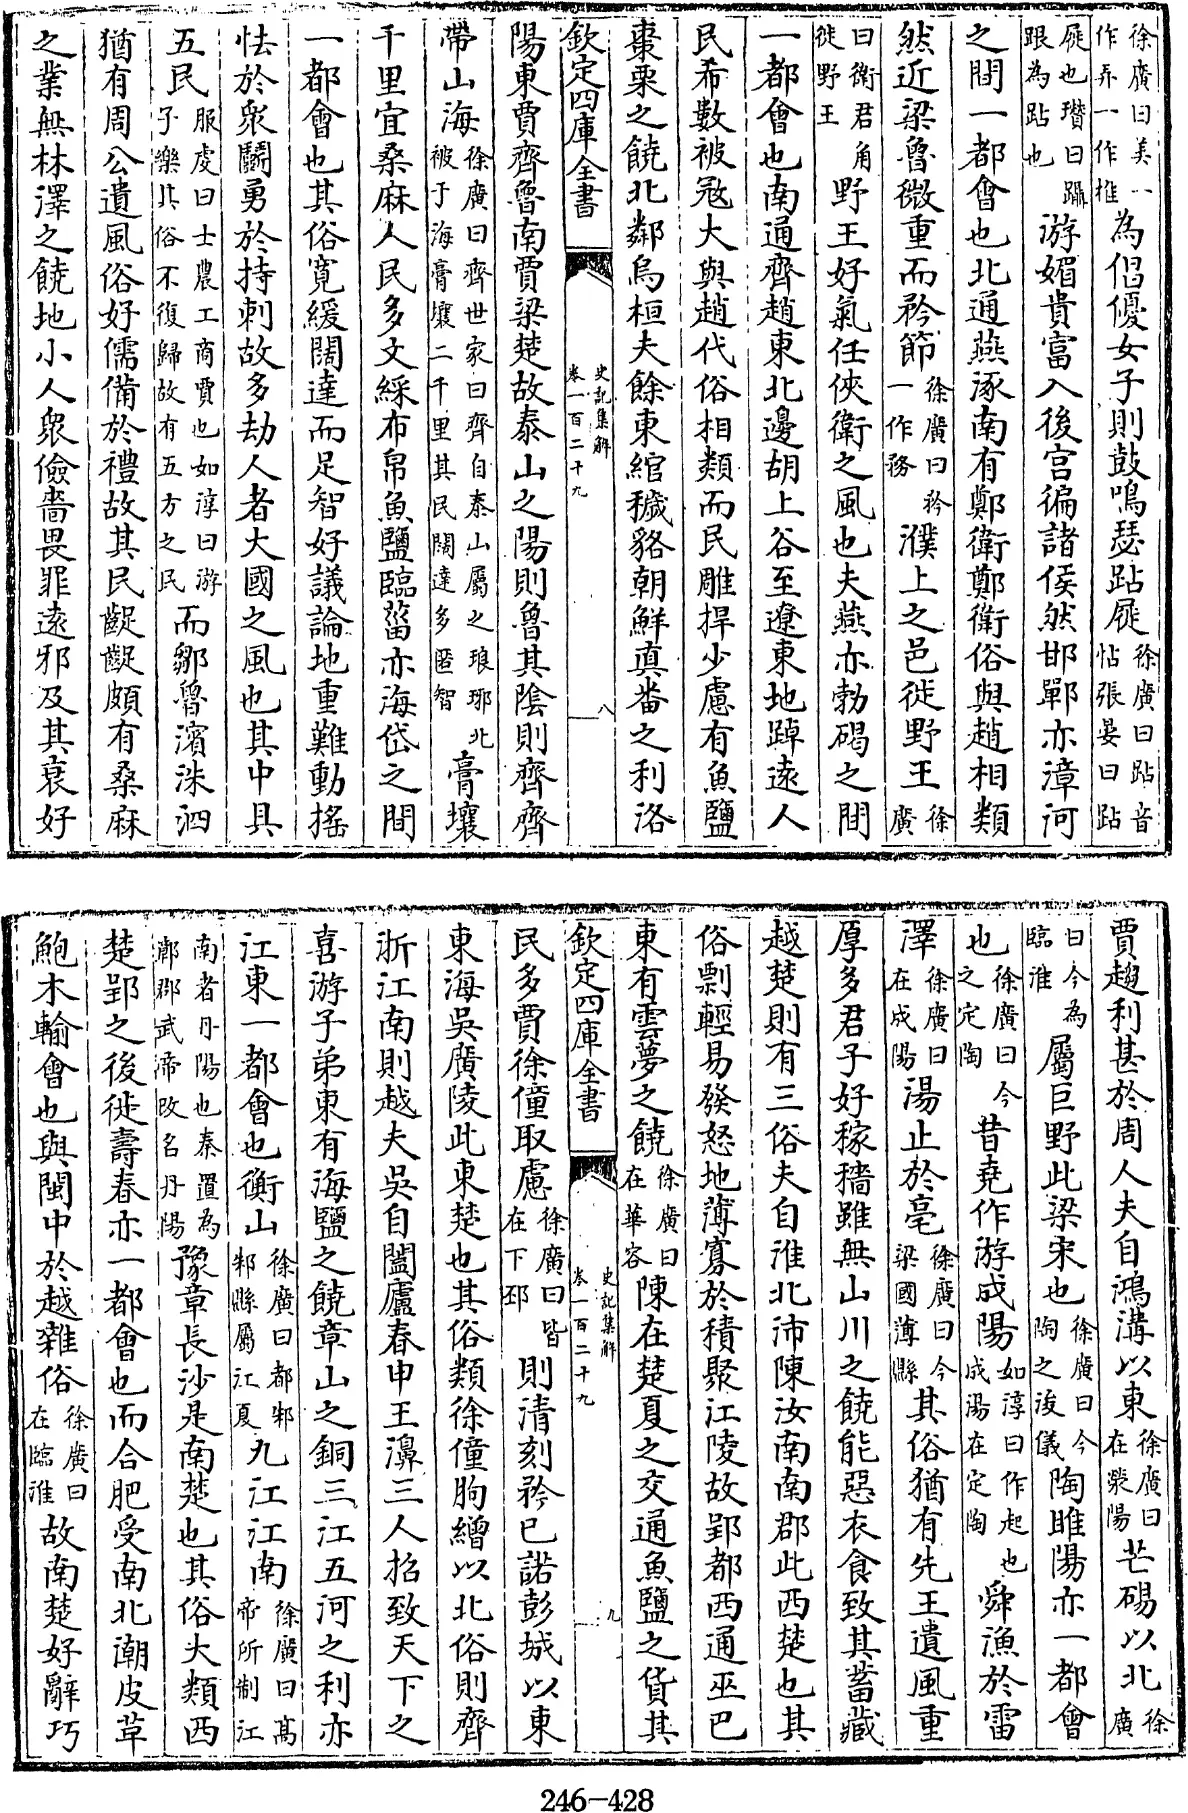 徐廣曰美一作弄一作椎為倡優女子則鼓鳴瑟跕屣徐廣曰跕音怗張晏曰跕
屣也瓚曰躡跟為跕也游媚貴富入後宮徧諸侯然邯鄲亦漳河
之間一都會也北通燕涿南有鄭衛鄭衛俗與趙相類
然近梁魯微重而矜節徐廣曰矜一作務濮上之邑徙野王徐廣
曰衛君角徙野王野王好氣任俠衛之風也夫燕亦勃碣之間
一都會也南通齊趙東北邊胡上谷至遼東地踔遠人
民希數被冦大與趙代俗相類而民雕捍少慮有魚鹽
棗栗之饒北鄰烏桓夫餘東綰穢貉朝鮮真畨之利洛
欽定四庫全書 史記集解 卷一百二十九 八
陽東賈齊魯南賈梁楚故泰山之陽則魯其陰則齊齊
帶山海徐廣曰齊世家曰齊自泰山屬之琅琊北被于海膏壤二千里其民闊達多匿智膏壤
千里宜桑麻人民多文綵布帛魚鹽臨菑亦海岱之間
一都會也其俗寛緩闊達而足智好議論地重難動搖
怯於衆鬬勇於持刺故多劫人者大國之風也其中具
五民服虔曰士農工商賈也如淳曰游子樂其俗不復歸故有五方之民而鄒魯濱洙泗
猶有周公遺風俗好儒備於禮故其民齪齪頗有桑麻
之業無林澤之饒地小人衆儉嗇畏罪遠邪及其衰好
賈趨利甚於周人夫自鴻溝以東徐廣曰在滎陽芒碭以北徐廣
曰今為臨淮屬巨野此梁宋也徐廣曰今陶之浚儀陶睢陽亦一都會
也徐廣曰今之定陶昔堯作游成陽如淳曰作起也成湯在定陶舜漁於雷
澤徐廣曰在成陽湯止於亳徐廣曰今梁國薄縣其俗猶有先王遺風重
厚多君子好稼穡雖無山川之饒能惡衣食致其蓄藏
越楚則有三俗夫自淮北沛陳汝南南郡此西楚也其
俗剽輕易發怒地薄寡於積聚江陵故郢都西通巫巴
東有雲夢之饒徐廣曰在華容陳在楚夏之交通魚鹽之貨其
欽定四庫全書 史記集解 卷一百二十九 九
民多賈徐僮取慮徐廣曰皆在下邳則清刻矜已諾彭城以東
東海吳廣陵此東楚也其俗類徐僮朐繒以北俗則齊
浙江南則越夫吳自闔廬春申王濞三人招致天下之
喜游子弟東有海鹽之饒章山之銅三江五河之利亦
江東一都會也衡山徐廣曰都邾邾縣屬江夏九江江南徐廣曰髙帝所制江
南者丹陽也秦置為鄣郡武帝改名丹陽豫章長沙是南楚也其俗大類西
楚郢之後徙壽春亦一都會也而合肥受南北潮皮革
鮑木輸會也與閩中於越雜俗徐廣曰在臨淮故南楚好辭巧
246-428